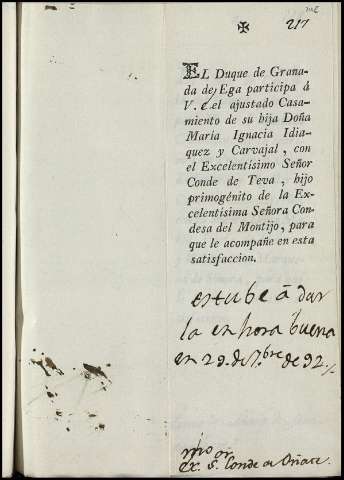 217
✠
EL Duque de Grana-
da de Ega participa á
V. e. el ajustado Casa-
miento de su hija Doña
María Ignacia Idia-
quez y Carvajal, con
el Excelentísimo Señor
Conde de Teva, hijo
primogénito de la Ex-
celentísima Señora Con-
desa del Montijo, para
que le acompañe en esta
satisfaccion.
estube â dar
la en hora buena
en 29. de 7.bre de 92
Ex. S. Conde de Oñate.